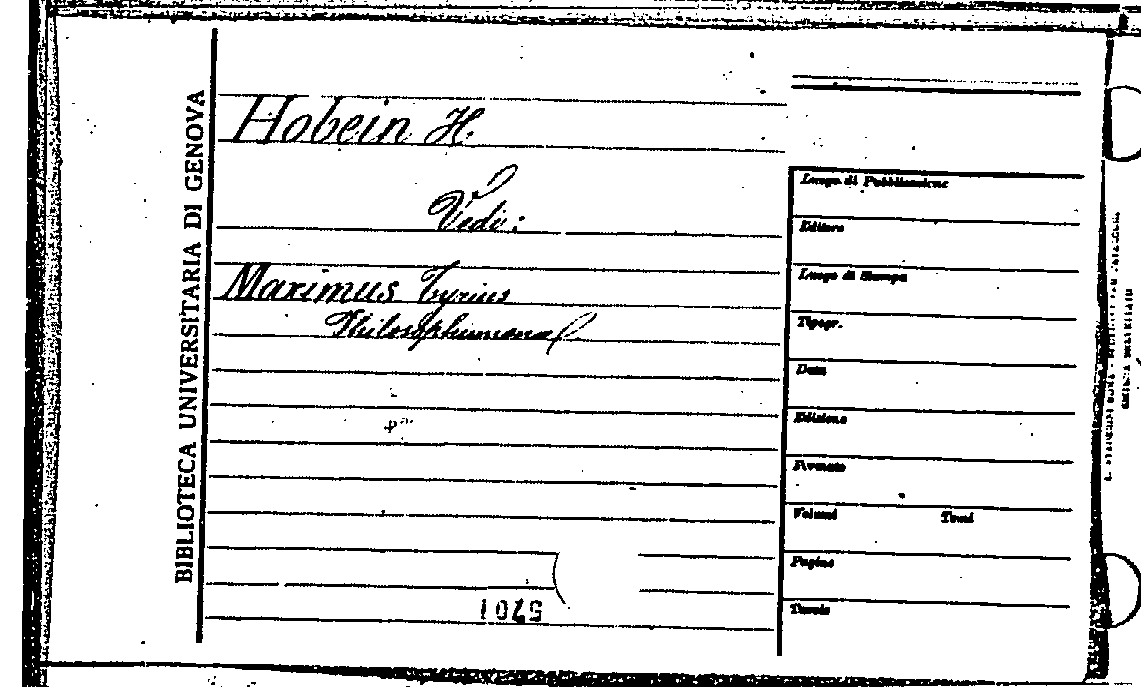 BIBLIOTECA UNIVERSITARIA DI GENOVA
Hobein H.
Vedi:
Maximus Tyrius
Philosophumena
Luogo di Pubblicazione
Editore
Luogo di Stampa
Tipogr.
Data
Edizione
Formato
Volumi Tomi
Pagine
Tavole